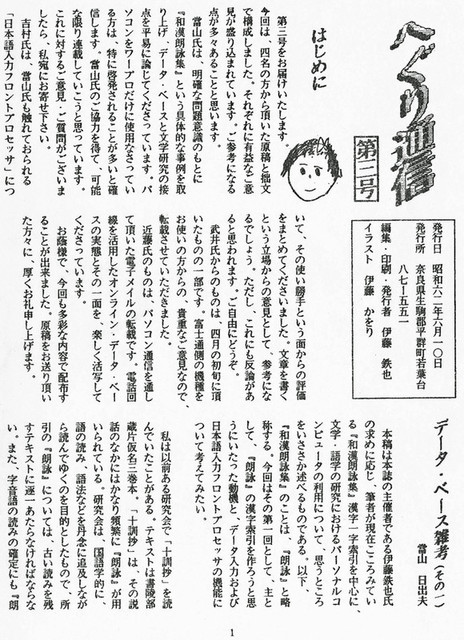 へぐり通信
第三号
発行日 昭和六二年六月一〇日
発行所 奈良県生駒郡平群町若葉台
八七ー五五一
編集・印刷・発行者 伊藤 鉄也
イラスト 伊藤 かをり
はじめに
第三号をお届けいたします。
今回は、四名の方から頂いた原稿と拙文
で構成しました。それぞれに有益なご意
見が盛り込まれています。ご参考になる
点が多々あることと思います。
當山氏は、明確な問題意識のもとに
『和漢朗詠集』という具体的な事例を取
り上げ、データ・ベースと文学研究の接
点を平易に論じてくださっています。パ
ソコンをワープロだけに使用なさってい
る方は、特に啓発されることが多いと確
信します。當山氏のご協力を得て、可能
な限り連載していこうと思っています。
これに対するご意見・ご質問がございま
したら、私宛にお寄せ下さい。
吉村氏は、當山氏も触れておられる
「日本語入力フロントプロセッサ」につ
いて、その使い勝手という面からの評価
をまとめてくださいました。文章を書く
という立場からの意見として、参考にな
るでしょう。ただし、これにも反論があ
ると思われます。ご自由にどうぞ。
武井氏からのものは、四月の初旬に頂
いたものの一部です。富士通側の機種を
お使いの方からの、貴重なご意見なので、
転載させていただきました。
近藤氏のものは、パソコン通信を通し
て頂いた電子メイルの転載です。電話回
線を活用したオンライン・データ・ベー
スの実態とその一面を、楽しく活写して
くださっています。
お蔭様で、今回も多彩な内容で配布す
ることが出来ました。原稿をお送り頂い
た方々に、厚くお礼申し上げます。
データ・ベース雑考(その一)
當山 日出夫
本稿は本誌の主催者である伊藤鉄也氏
の求めに応じ、筆者が現在こころみてい
る『和漢朗詠集』漢字一字索引を中心に、
文学・語学の研究におけるパーソナルコ
ンピュータの利用について、思うところ
をいささか述べるものである。以下、
『和漢朗詠集』のことは、『朗詠』と略
称する。今回はその第一回として、主と
して、『朗詠』の漢字索引を作ろうと思
うにいたった動機と、データ入力および
日本語入力フロントプロセッサの機能に
ついて考えてみたい。
私は以前ある研究会で『十訓抄』を読
んでいたことがある。テキストは書陵部
蔵片仮名三巻本。『十訓抄』は、その説
話のなかにはかなり頻繁に『朗詠』が用
いられている。研究会は、国語学的に、
語の読み、語法などを丹念に追及しなが
ら読んでゆくのを目的としたもので、所
引の『朗詠』については、古い読みを残
すテキストに逐一あたらなければならな
い。また、字音語の読みの確定にも『朗
1